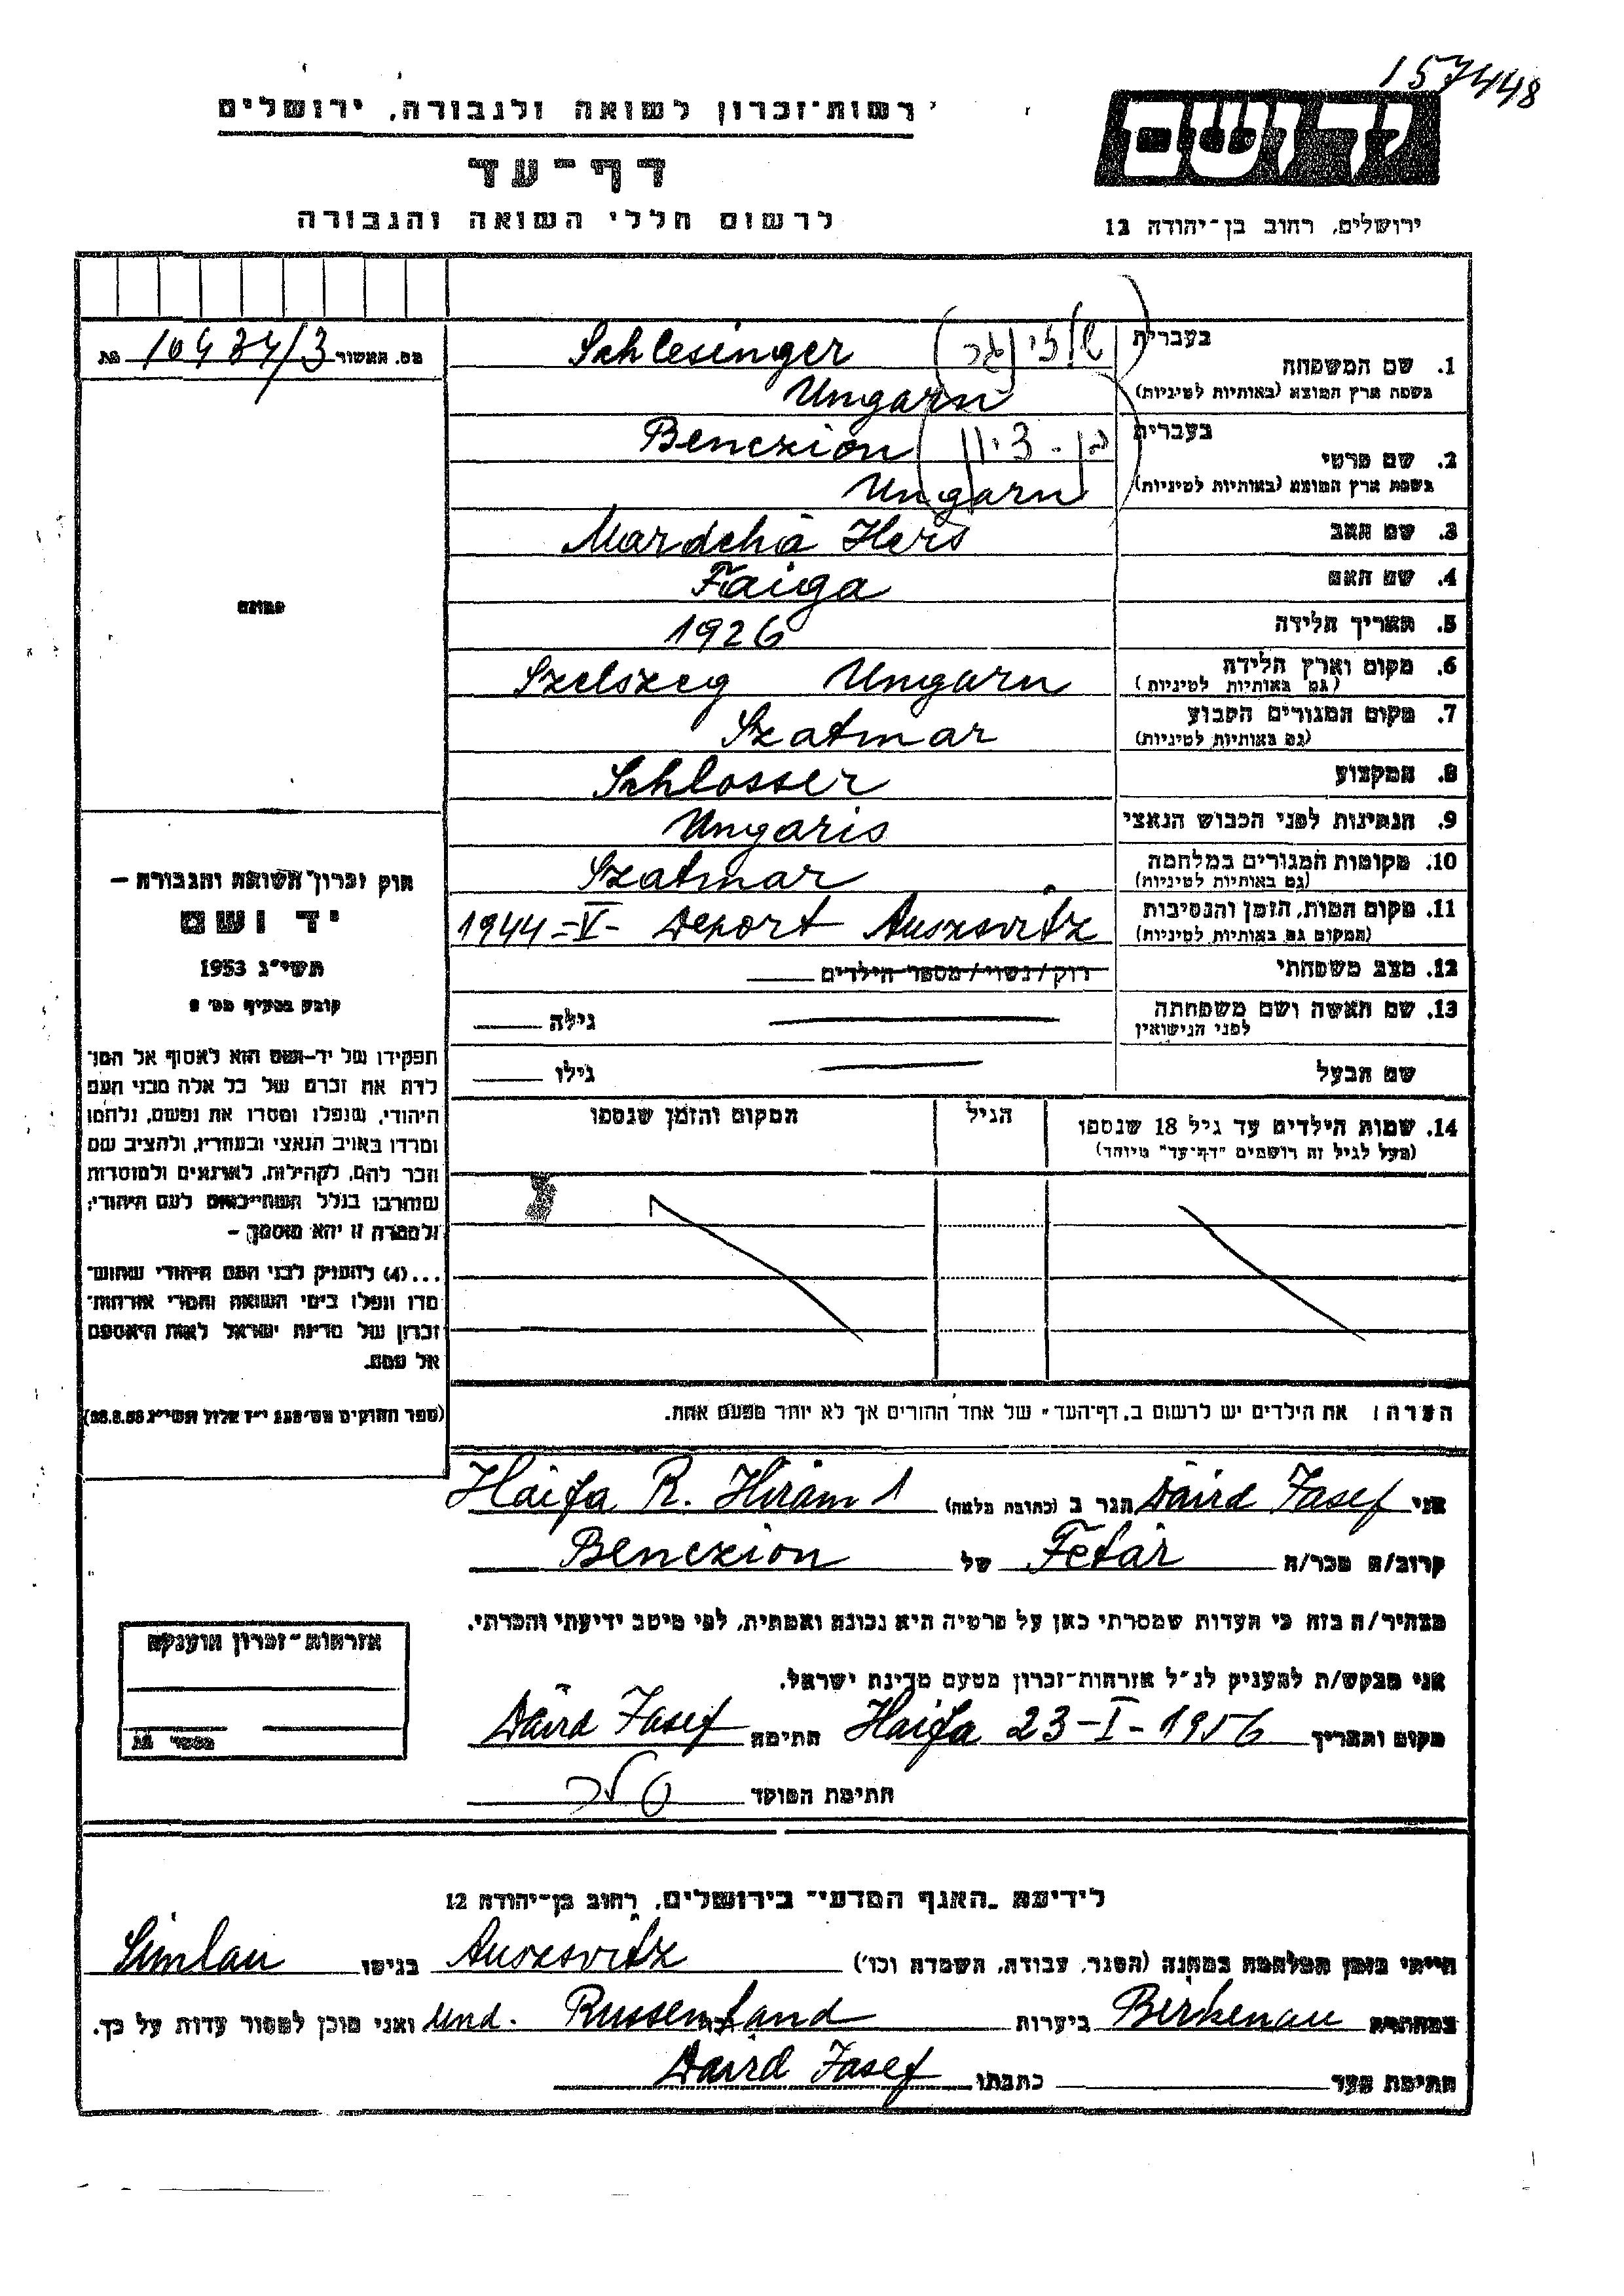 157448
רשות־זכרון לשואה ולגבורה, ירושלים
יד ושם
דף־עד
לרשום חללי השואה והגבורה
ירושלים, רחוב בן־יהודה 12
בעברית
1. שם המשפחה Schlesinger (שלזינגר)
בשפת ארץ המוצא (באותיות לטיניות) Ungarn
בעברית
2. שם פרטי Benczion (בן-ציון)
בשפת ארץ המוצא (באותיות לטיניות) Ungarn
3. שם האב Mardcha Hers
4. שם האם Faiga
5. תאריך הלידה 1926
6. מקום וארץ הלידה Szelszeg Ungarn
(גם באותיות לטיניות)
7. מקום המגורים הקבוע Szatmar
(גם באותיות לטיניות)
8. המקצוע Schlosser
9. הנתינות לפני הכבוש הנאצי Ungaris
10. מקומות המגורים במלחמה Szatmar
(גם באותיות לטיניות)
11. מקום המות, הזמן והנסיבות 1944-V- Deport Auszvitz
(המקום גם באותיות לטיניות)
12. מצב משפחתי רוק/נשוי/מספר הילדים
13. שם האשה ושם משפחתה גילה
לפני הנישואין
שם הבעל גילו
14. שמות הילדים עד גיל 18 שנספו הגיל המקום והזמן שנספו
(מעל לגיל זה רושמים "דף־עד" מיוחד)
הערה: את הילדים יש לרשום ב"דף־העד" של אחד ההורים אך לא יותר מפעם אחת.
מס. האשור 10434/3
תמונה
חוק זכרון השואה והגבורה –
יד ושם
תשי"ג 1953
קובע בסעיף מס' 2
תפקידו של יד־ושם הוא לאסוף אל המו־
לדת את זכרם של כל אלה מבני העם
היהודי, שנפלו ומסרו את נפשם, נלחמו
ומרדו באויב הנאצי ובעוזריו, ולהציב שם
וזכר להם, לקהילות, לארגונים ולמוסדות
שנחרבו בגלל השתייכותם לעם היהודי;
ולמטרה זו יהא מוסמך –
...(4) להעניק לבני העם היהודי שהוש־
מדו ונפלו בימי השואה והמרי אזרחות־
זכרון של מדינת ישראל לאות היאספם
אל עמם.
אני David Jasef הגר ב (כתובת מלאה) Haifa R. Hiram 1
קרוב/ה מכר/ה Fetár של Benczion
מצהיר/ה בזה כי העדות שמסרתי כאן על פרטיה היא נכונה ואמתית, לפי מיטב ידיעתי והכרתי.
אני מבקש/ת להעניק לנ"ל אזרחות־זכרון מטעם מדינת ישראל.
מקום ותאריך Haifa 23-I-1956 חתימה David Jasef
חתימת הפוקד
אזרחות־זכרון הוענקה
מספר
לידיעת "האגף המדעי" בירושלים, רחוב בן־יהודה 12
הייתי בזמן המלחמה במחנה (הסגר, עבודה, השמדה וכו') Auszvitz בגיטו Simlau
במחתרת Birkenau ביערות Russenland Und. ואני מוכן למסור עדות על כך.
חתימת העד כתבתו David Jasef